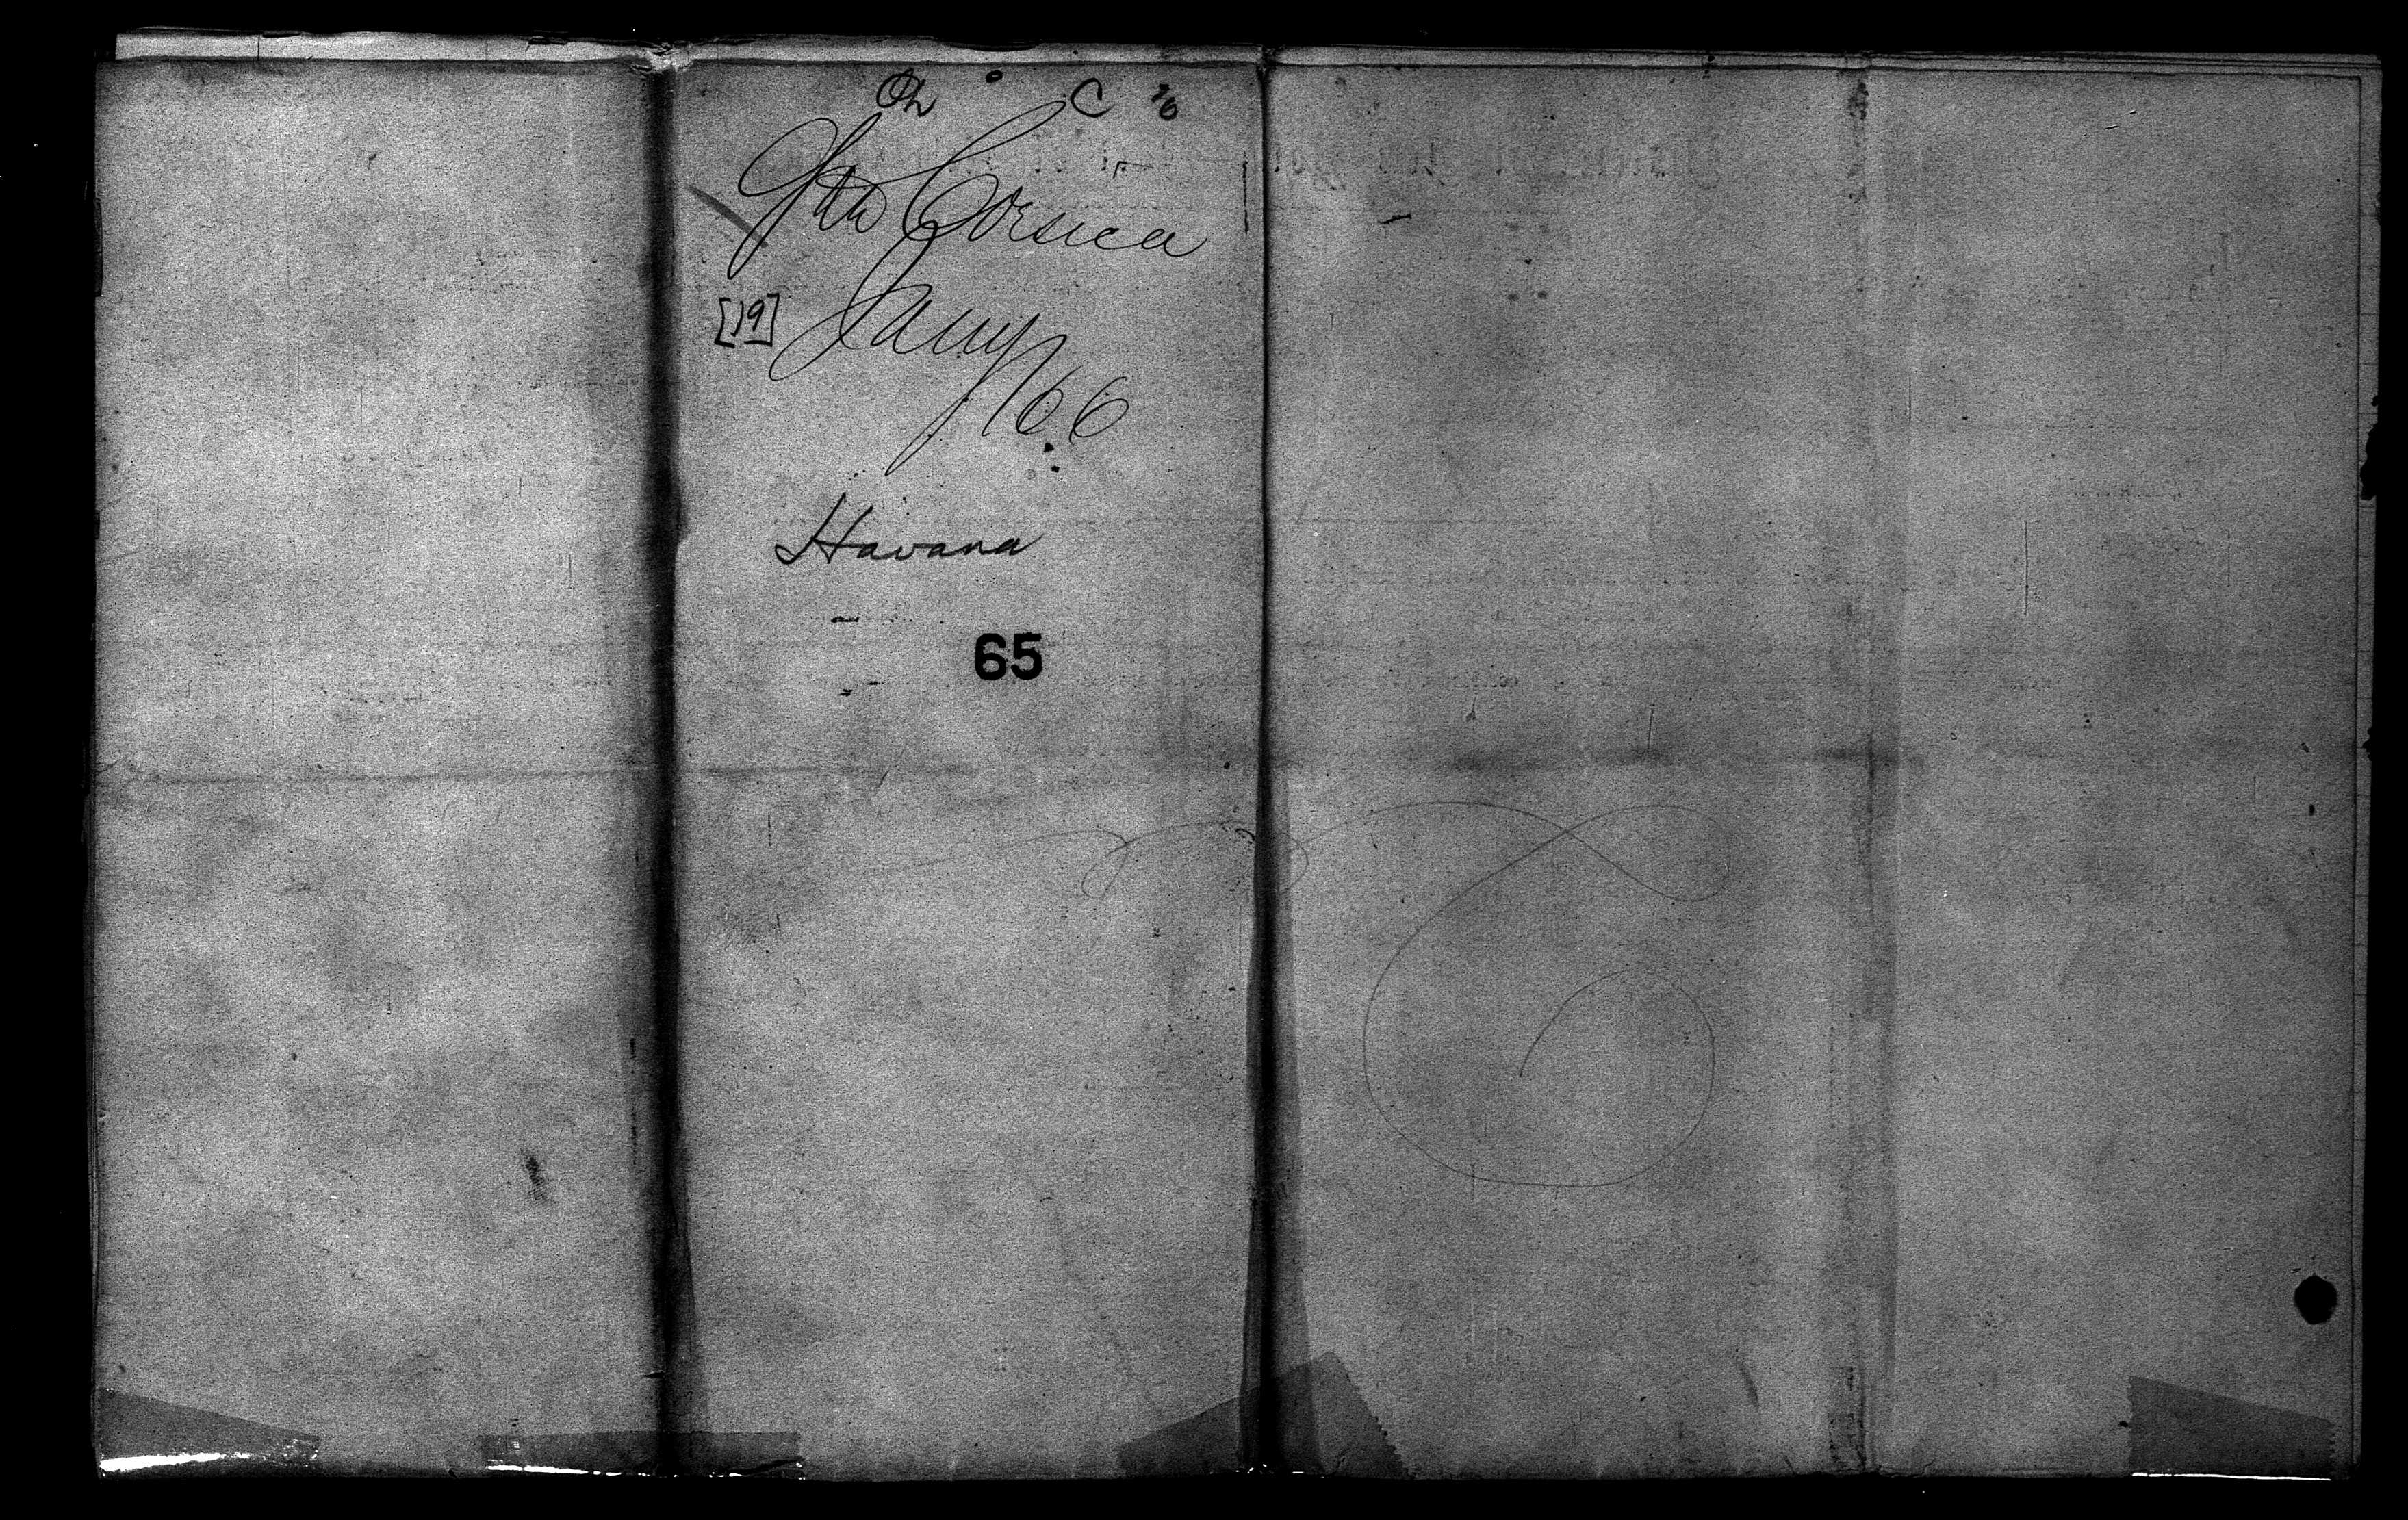 Ch C
Str Corsica
[19] Jany
/66
Havana
65